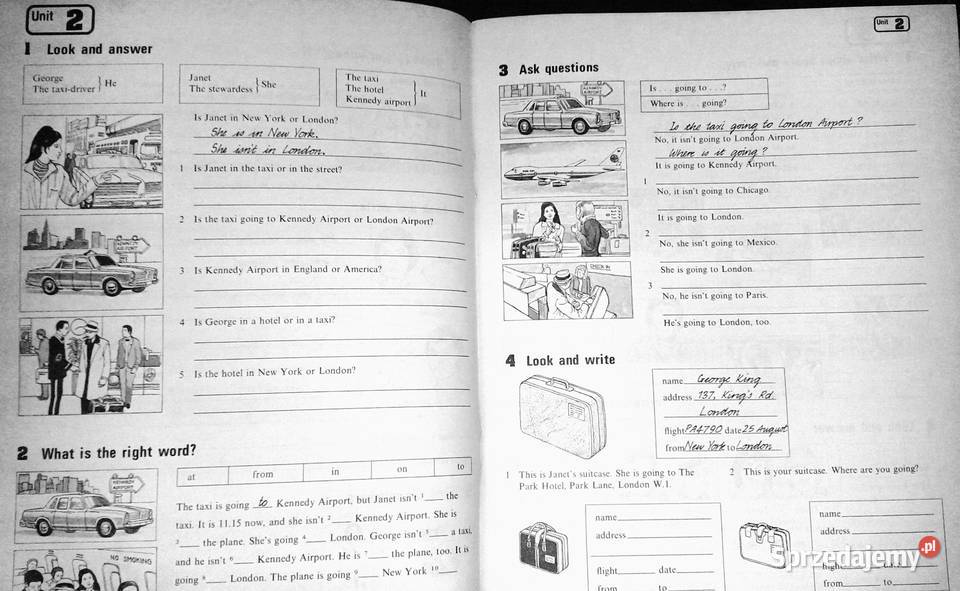 Unit 2
1 Look and answer
George
The taxi-driver } He
Janet
The stewardess } She
The taxi
The hotel
Kennedy airport } It
Is Janet in New York or London?
She is in New York.
She isn't in London.
1 Is Janet in the taxi or in the street?
2 Is the taxi going to Kennedy Airport or London Airport?
3 Is Kennedy Airport in England or America?
4 Is George in a hotel or in a taxi?
5 Is the hotel in New York or London?
KENNEDY AIRPORT
2 What is the right word?
at from in on to
KENNEDY AIRPORT
NO SMOKING
The taxi is going to Kennedy Airport, but Janet isn't 1____ the
taxi. It is 11.15 now, and she isn't 2____ Kennedy Airport. She is
3____ the plane. She's going 4____ London. George isn't 5____ a taxi,
and he isn't 6____ Kennedy Airport. He is 7____ the plane, too. It is
going 8____ London. The plane is going 9____ New York 10____
Unit 2
3 Ask questions
KENNEDY AIRPORT
CHECK IN
Is . . . going to . . .?
Where is . . . going?
Is the taxi going to London Airport?
No, it isn't going to London Airport.
Where is it going?
It is going to Kennedy Airport.
1
No, it isn't going to Chicago.
It is going to London.
2
No, she isn't going to Mexico.
She is going to London.
3
No, he isn't going to Paris.
He's going to London, too.
4 Look and write
name George King
address 137, King's Rd
London
flight PA4790 date 25 August
from New York to London
1 This is Janet's suitcase. She is going to The
Park Hotel, Park Lane, London W.1.
2 This is your suitcase. Where are you going?
name
address
flight date
from to
name
address
flight
from to
Sprzedajemy.pl